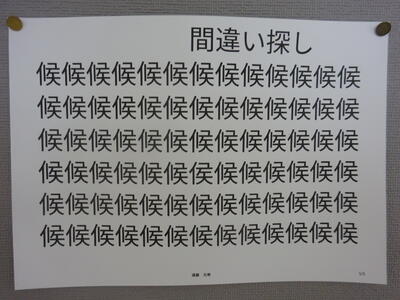 間違い探し
候候候候候候候候候候候候候
候候候候候候候候候候候候候
候候候候候候候候候候候候候
候候候候候候侯候候候候候候
候候候候候候候候候候候候候
候候候候候候候候候候候候候